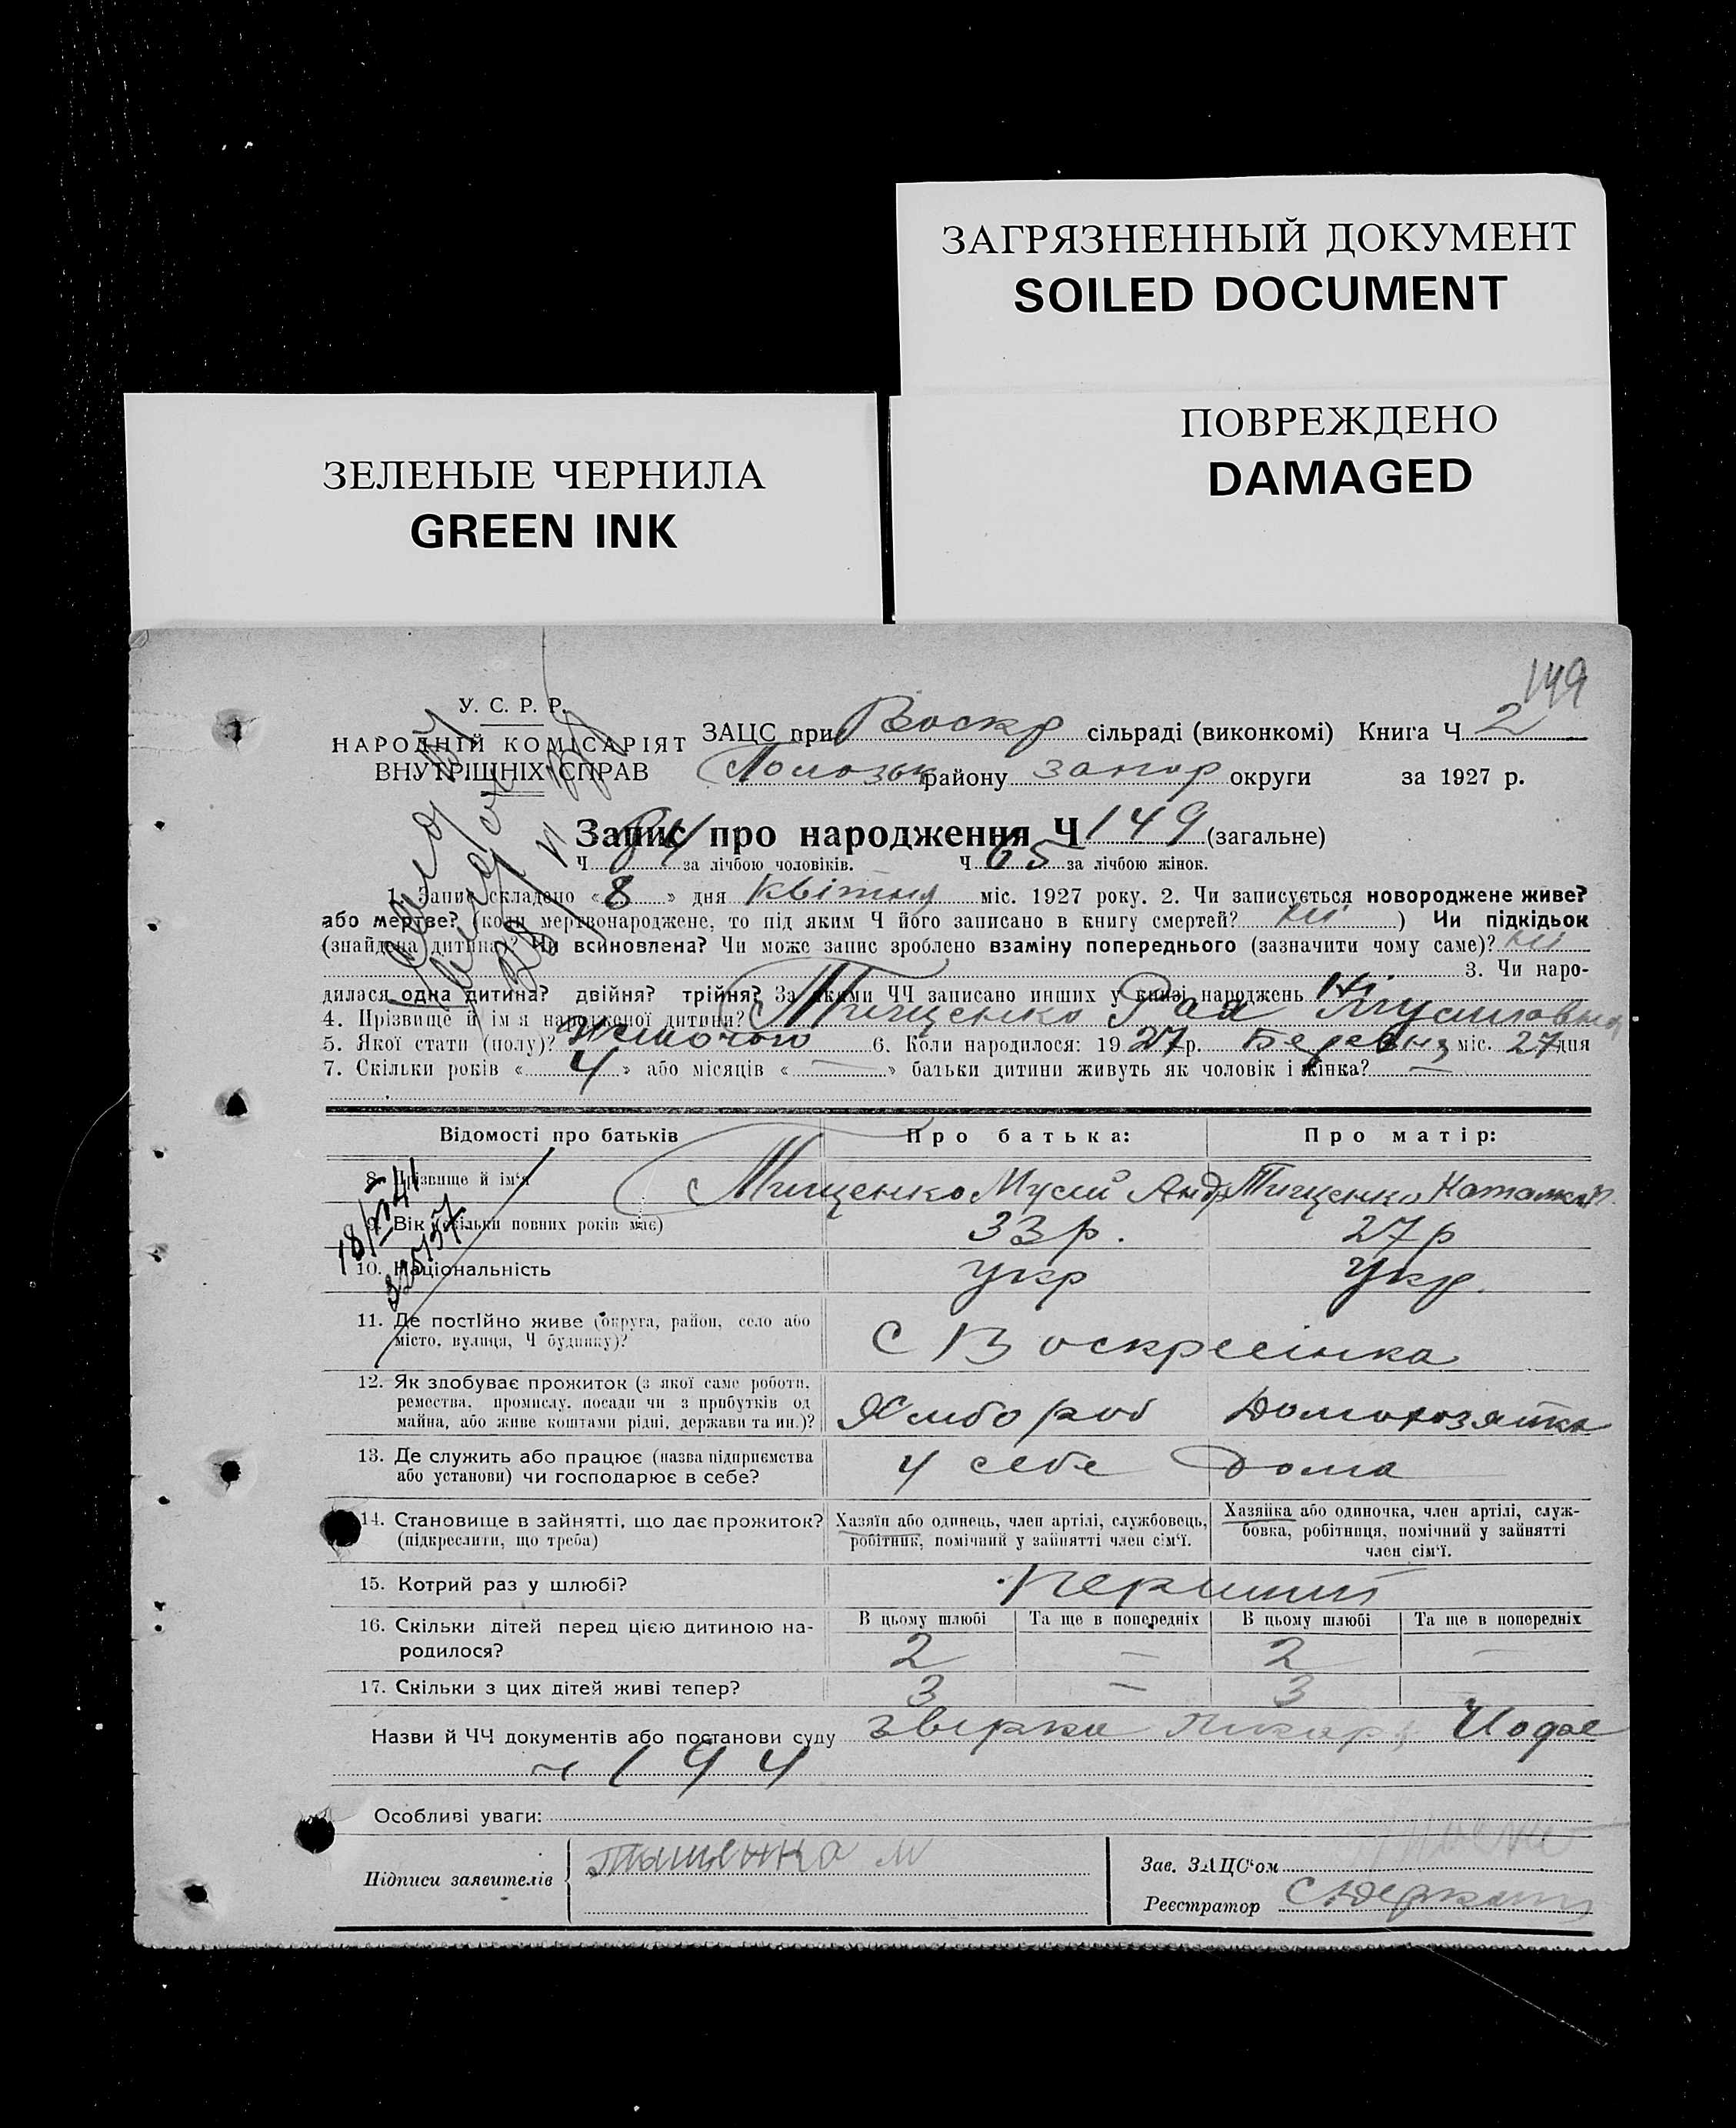 ЗАГРЯЗНЕННЫЙ ДОКУМЕНТ
SOILED DOCUMENT
ПОВРЕЖДЕНО
DAMAGED
ЗЕЛЕНЫЕ ЧЕРНИЛА
GREEN INK
149
У. С. Р. Р.
НАРОДНІЙ КОМІСАРІЯТ
ВНУТРІШНІХ СПРАВ
ЗАЦС при Воскр сільраді (виконкомі) Книга Ч 2
Пологськ району запор округи за 1927 р.
Запис про народження Ч 149 (загальне)
Ч 84 за лічбою чоловіків. Ч 65 за лічбою жінок.
1. Запис складено « 8 » дня квітня міс. 1927 року. 2. Чи записується новороджене живе?
або мертве? (коли мертвонароджене, то під яким Ч його записано в книгу смертей? ні ) Чи підкідьок
(знайдена дитина)? Чи всиновлена? Чи може запис зроблено взаміну попереднього (зазначити чому саме)? ні
3. Чи наро-
дилася одна дитина? двійня? трійня? За якими ЧЧ записано инших у книзі народжень ні
4. Прізвище й ім'я народженої дитини? Тищенко Рая Мусиївна
5. Якої стати (полу)? жіночого 6. Коли народилося: 19 27 р. Березня міс. 27 дня
7. Скільки років « 4 » або місяців « — » батьки дитини живуть як чоловік і жінка? —
Відомості про батьків Про батька: Про матір:
8. Прізвище й ім'я Тищенко Мусій Андр Тищенко Наталка
9. Вік (скільки повних років має) 33 р. 27 р
10. Національність укр укр.
11. Де постійно живе (округа, район, село або
місто, вулиця, Ч будинку)? С Воскресінка
12. Як здобуває прожиток (з якої саме роботи,
ремества, промислу, посади чи з прибутків од
майна, або живе коштами рідні, держави та ин.)? Хлібороб Домохозяйка
13. Де служить або працює (назва підприємства
або установи) чи господарює в себе? у себе дома
14. Становище в зайнятті, що дає прожиток?
(підкреслити, що треба)
Хазяїн або одинець, член артілі, службовець,
робітник, помічний у зайнятті член сім'ї.
Хазяйка або одиночка, член артілі, служ-
бовка, робітниця, помічний у зайнятті
член сім'ї.
15. Котрий раз у шлюбі? перший
16. Скільки дітей перед цією дитиною на-
родилося?
В цьому шлюбі Та ще в попередніх В цьому шлюбі Та ще в попередніх
2 — 2 —
17. Скільки з цих дітей живі тепер? 3 — 3
Назви й ЧЧ документів або постанови суду
194
Особливі уваги:
Підписи заявителів
Зав. ЗАЦС'ом
Реєстратор